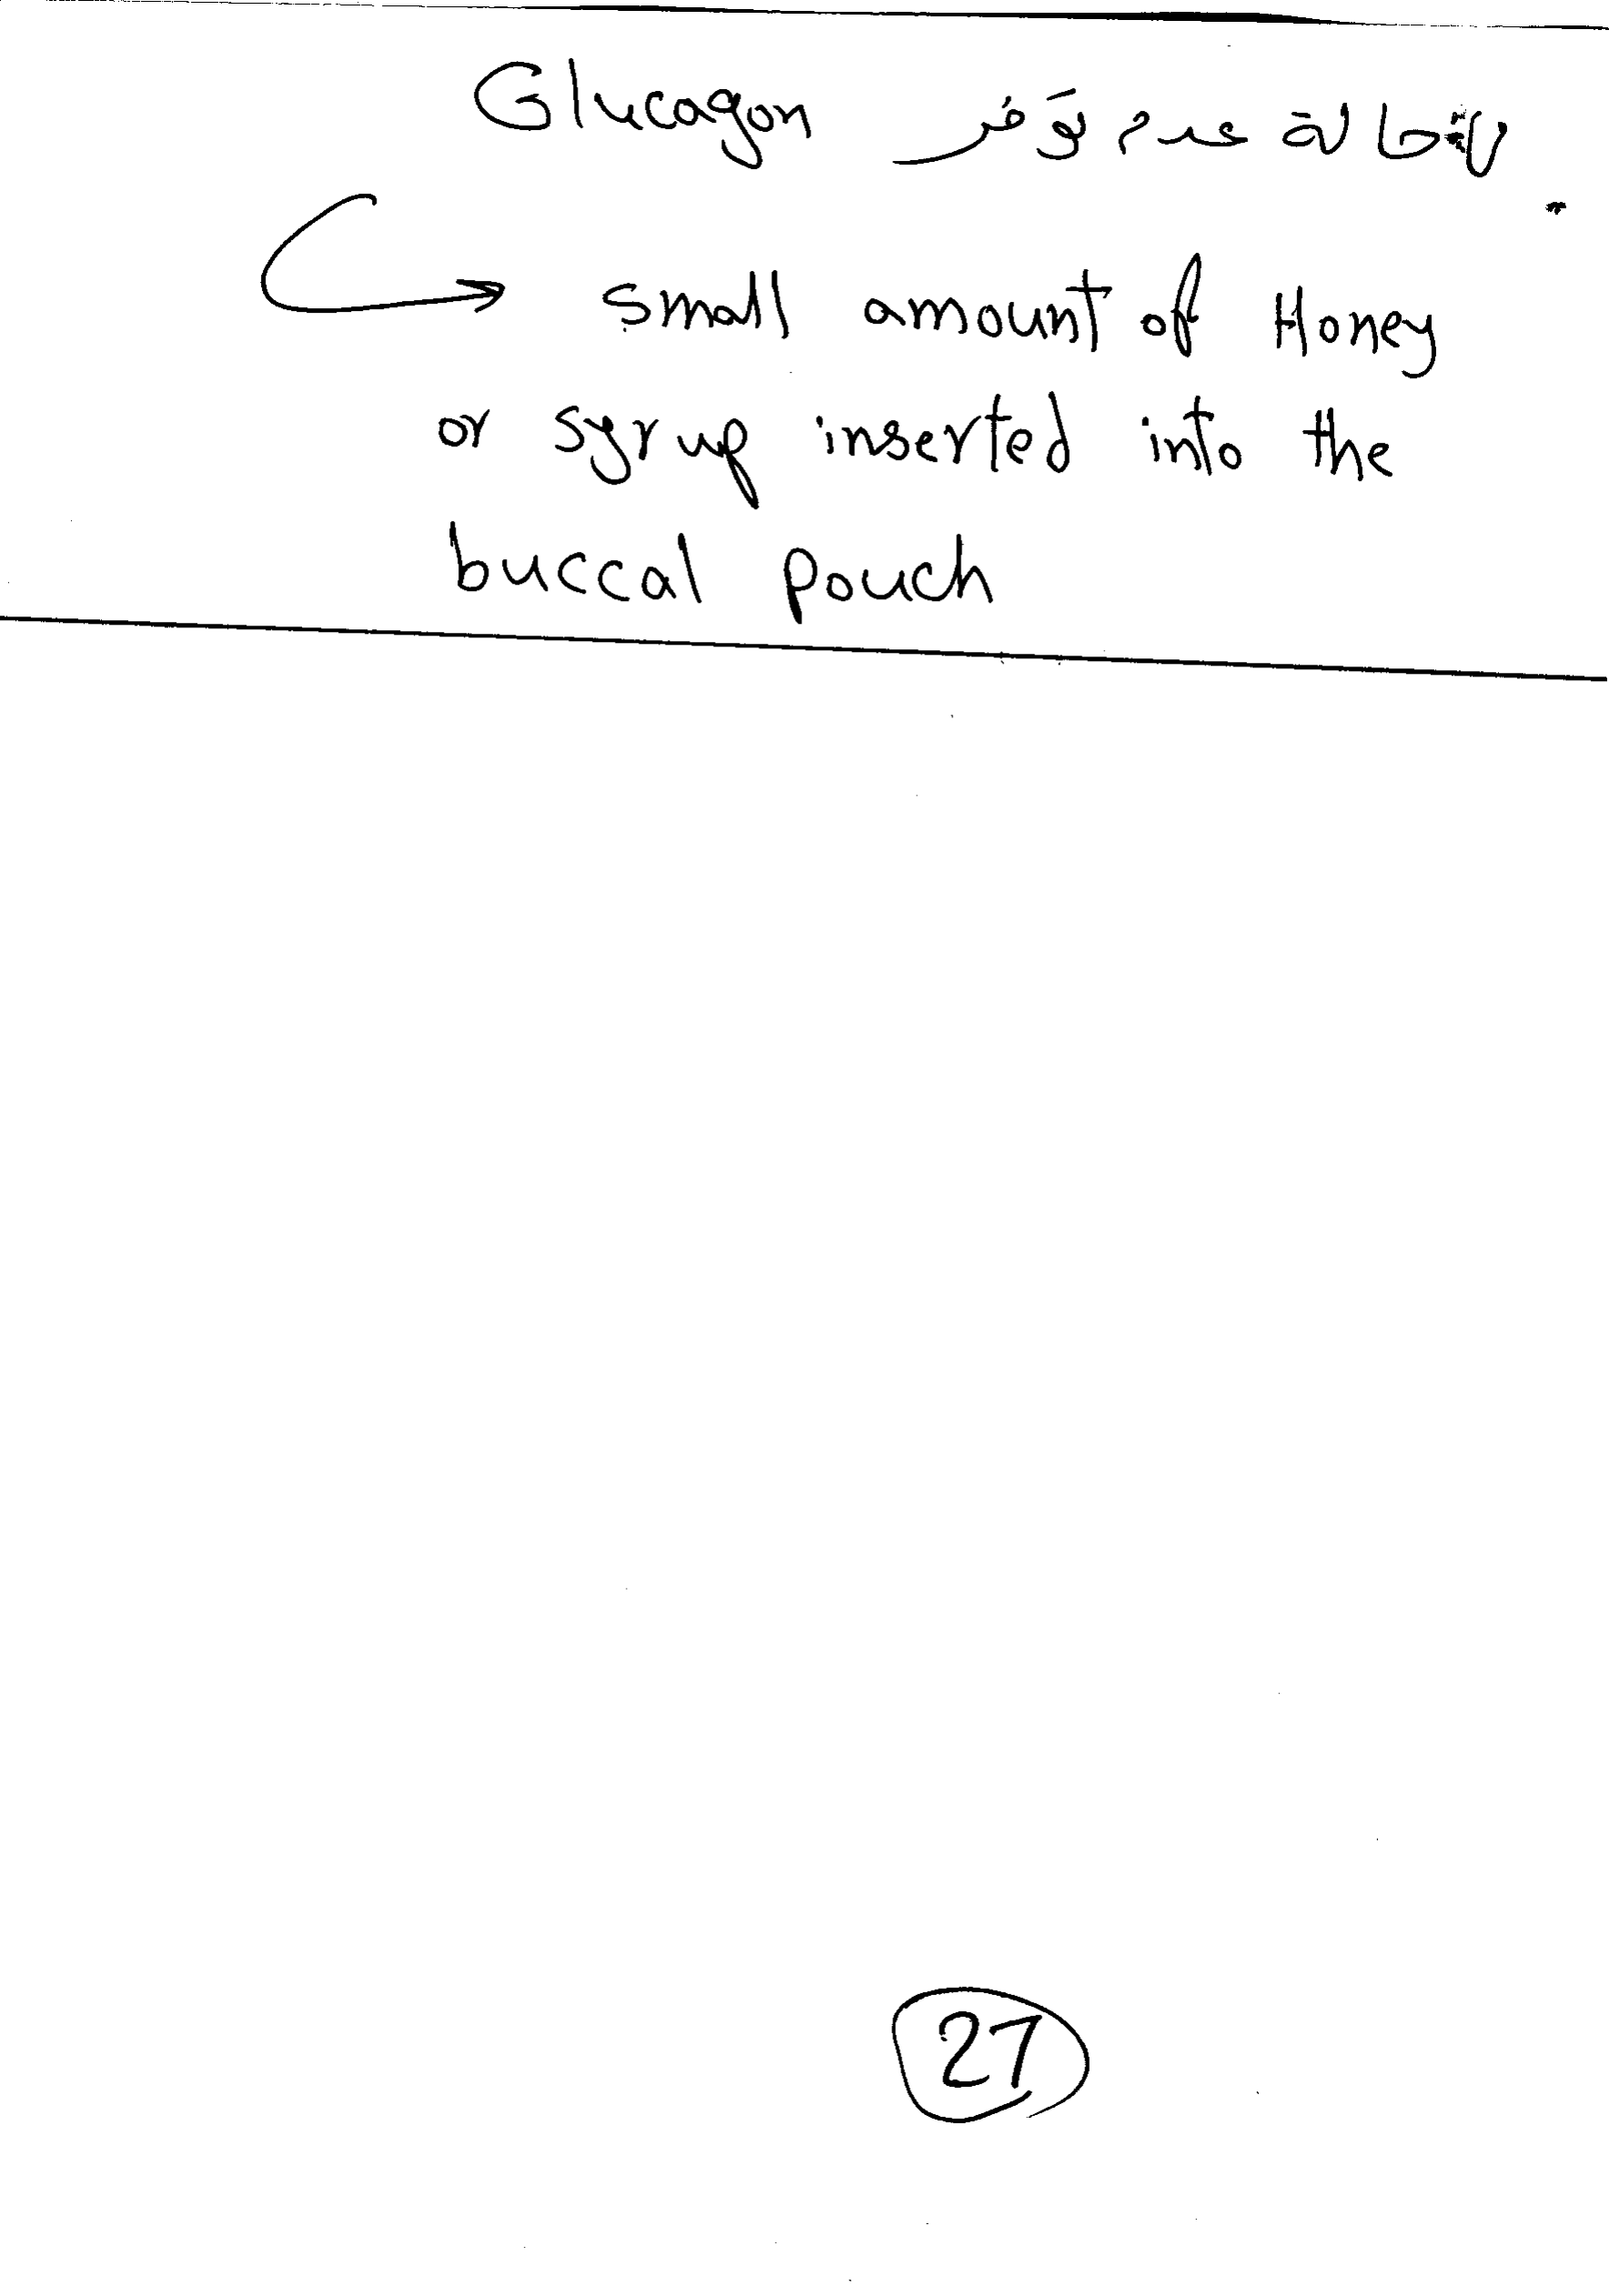 لحالة عدم توفر Glucagon
small amount of Honey
or syrup inserted into the
buccal pouch
27